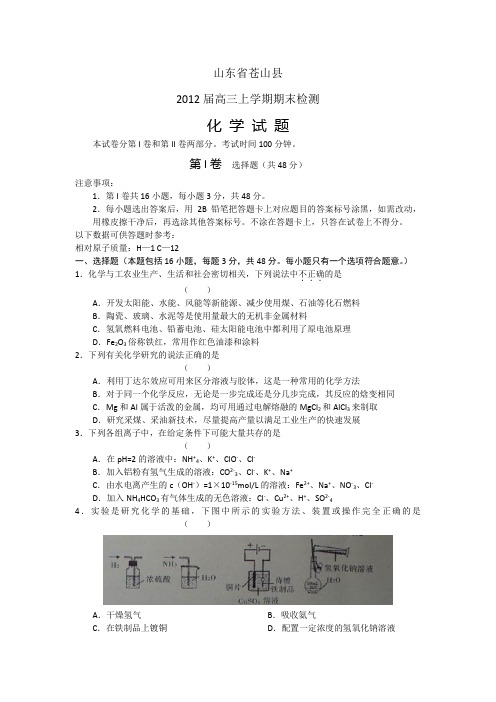 山东省苍山县
2012届高三上学期期末检测
化 学 试 题
本试卷分第I卷和第II卷两部分。考试时间100分钟。
第I卷 选择题（共48分）
注意事项：
1．第I卷共16小题，每小题3分，共48分。
2．每小题选出答案后，用2B铅笔把答题卡上对应题目的答案标号涂黑，如需改动，
用橡皮擦干净后，再选涂其他答案标号。不涂在答题卡上，只答在试卷上不得分。
以下数据可供答题时参考：
相对原子质量：H—1 C—12
一、选择题（本题包括16小题，每题3分，共48分。每小题只有一个选项符合题意。）
1．化学与工农业生产、生活和社会密切相关，下列说法中不正确的是
（ ）
A．开发太阳能、水能、风能等新能源、减少使用煤、石油等化石燃料
B．陶瓷、玻璃、水泥等是使用量最大的无机非金属材料
C．氢氧燃料电池、铅蓄电池、硅太阳能电池中都利用了原电池原理
D．Fe₂O₃俗称铁红，常用作红色油漆和涂料
2．下列有关化学研究的说法正确的是
（ ）
A．利用丁达尔效应可用来区分溶液与胶体，这是一种常用的化学方法
B．对于同一个化学反应，无论是一步完成还是分几步完成，其反应的焓变相同
C．Mg和Al属于活泼的金属，均可用通过电解熔融的MgCl₂和AlCl₃来制取
D．研究采煤、采油新技术，尽量提高产量以满足工业生产的快速发展
3．下列各组离子中，在给定条件下可能大量共存的是
（ ）
A．在pH=2的溶液中：NH⁺₄、K⁺、ClO⁻、Cl⁻
B．加入铝粉有氢气生成的溶液：CO²⁻₃、Cl⁻、K⁺、Na⁺
C．由水电离产生的c（OH⁻）=1×10⁻¹⁵mol/L的溶液：Fe²⁺、Na⁺、NO⁻₃、Cl⁻
D．加入NH₄HCO₃有气体生成的无色溶液：Cl⁻、Cu²⁺、H⁺、SO²⁻₄
4．实验是研究化学的基础，下图中所示的实验方法、装置或操作完全正确的是
（ ）
H₂ 浓硫酸 NH₃ H₂O 铜片 待镀铁制品 CuSO₄溶液 氢氧化钠溶液 H₂O
A．干燥氢气 B．吸收氨气
C．在铁制品上镀铜 D．配置一定浓度的氢氧化钠溶液